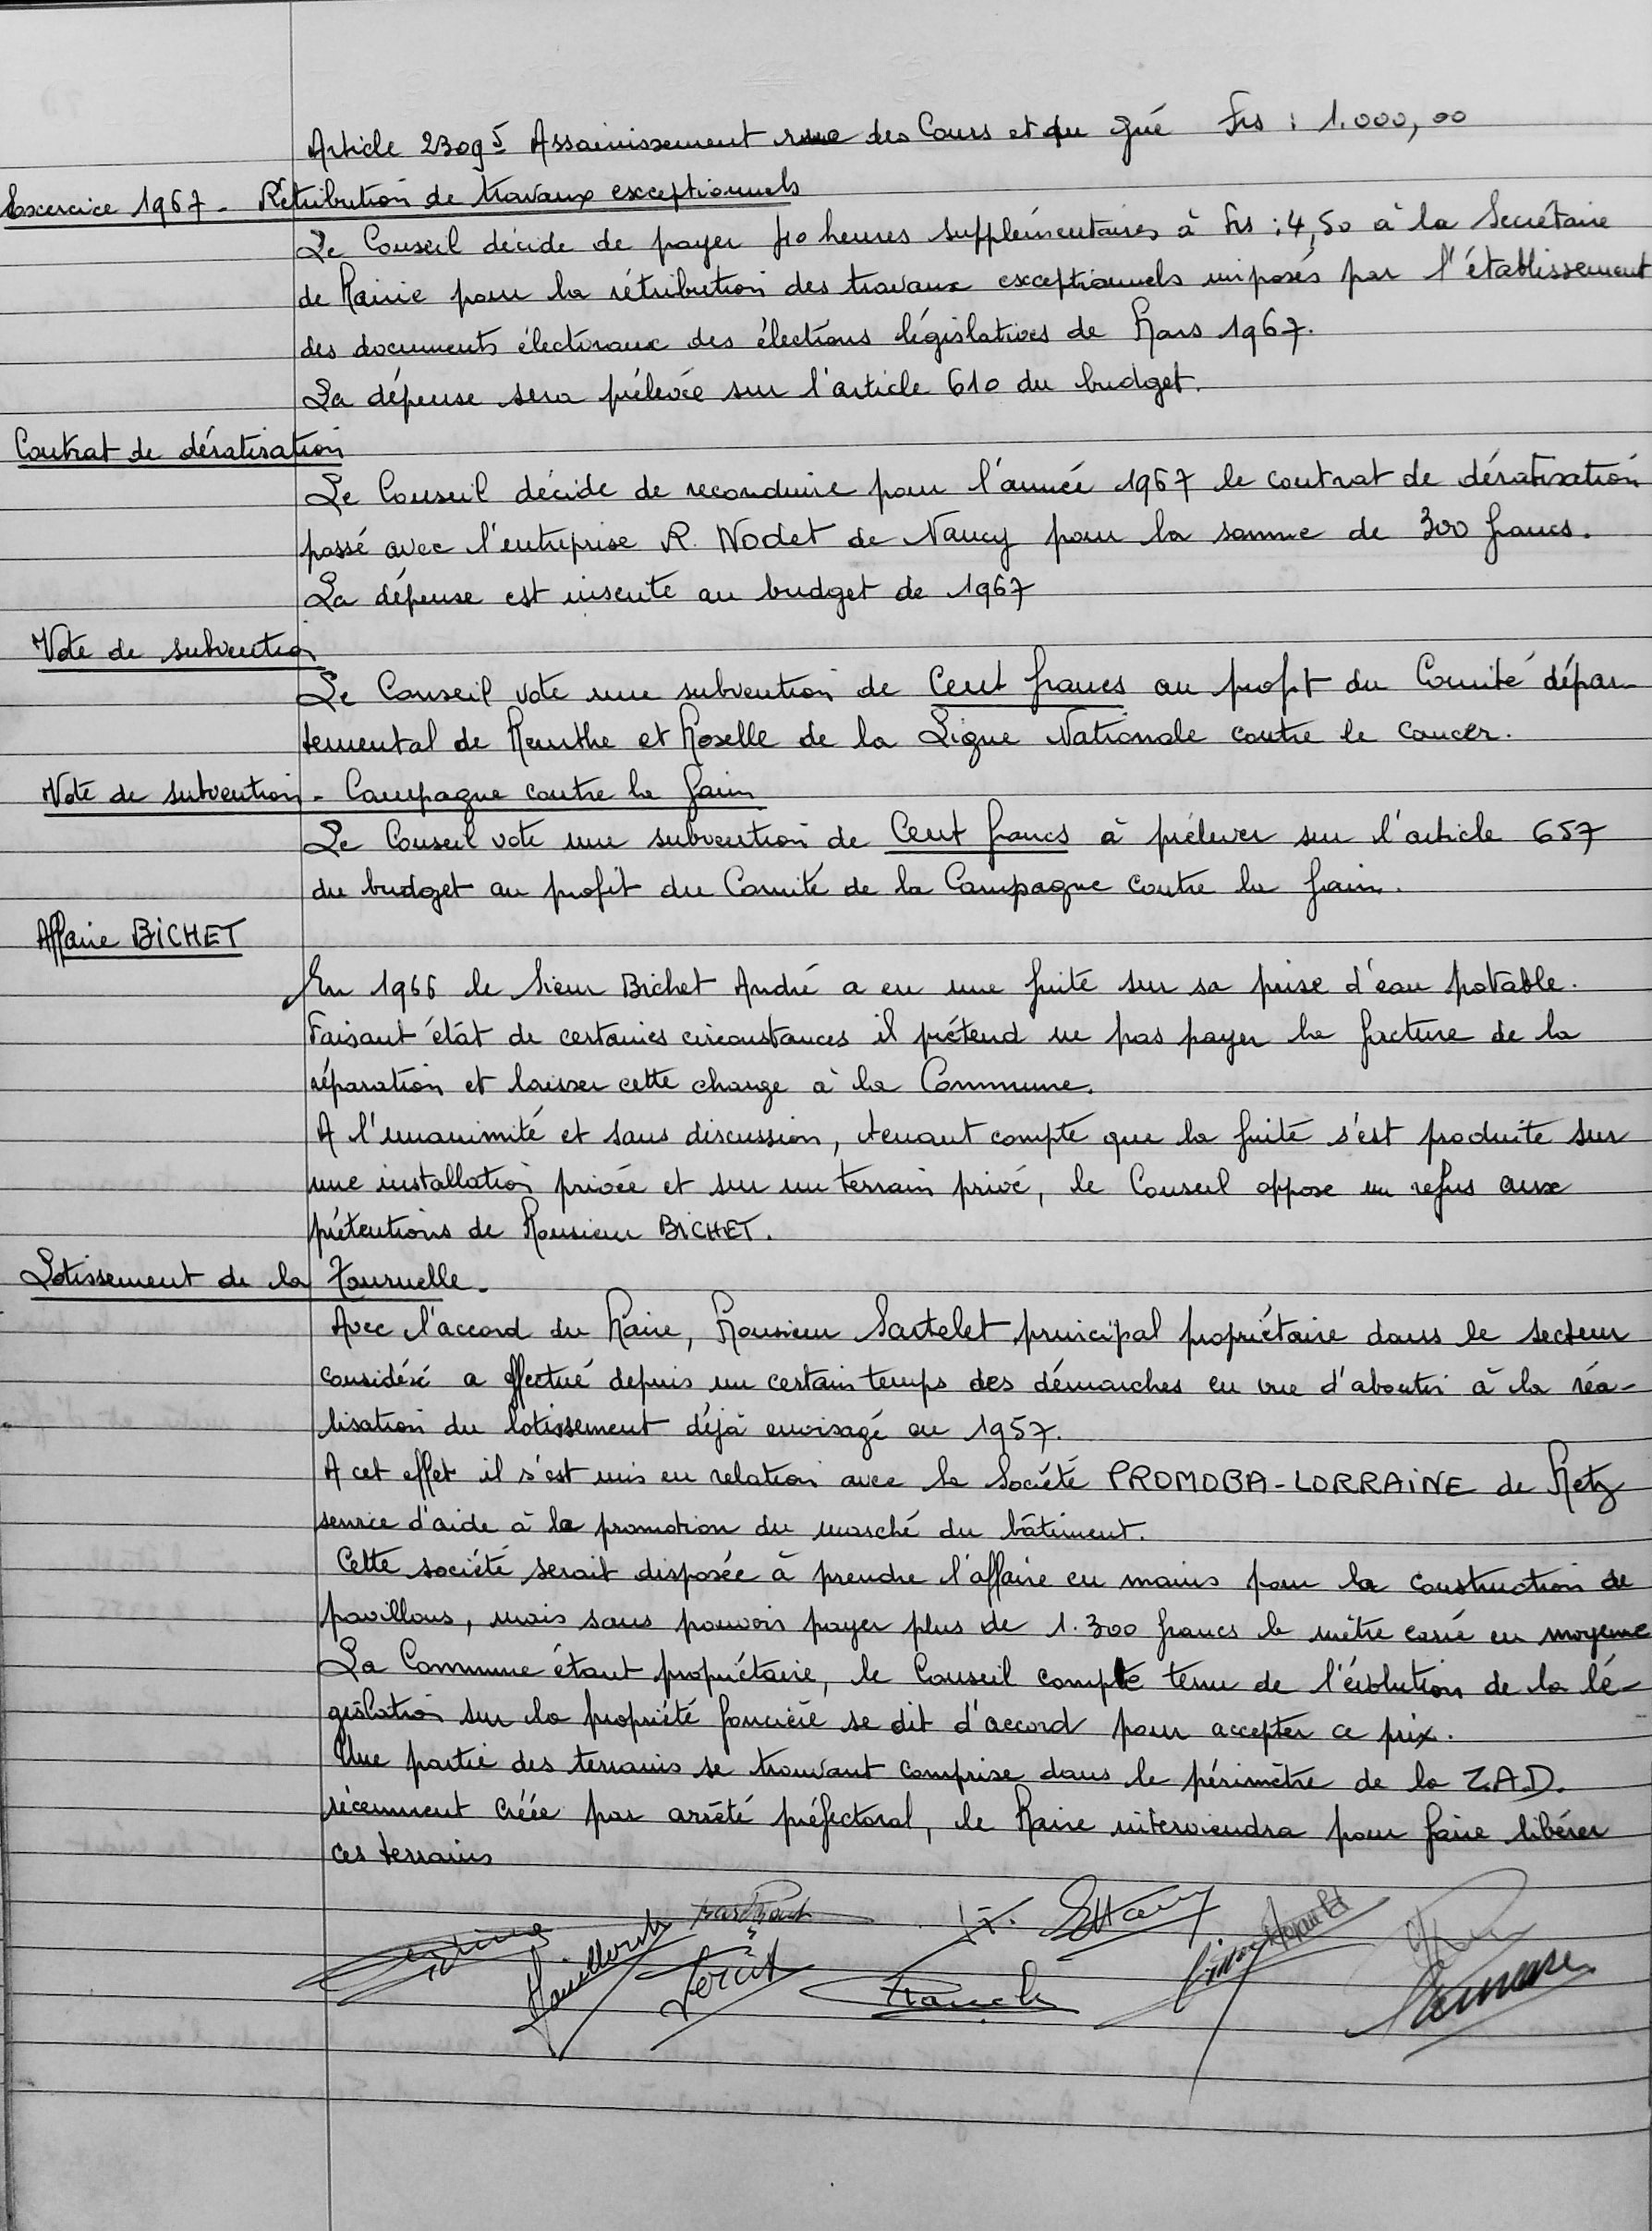 Article 2309 5 Assainissement rue des Cours et du Gué Frs : 1.000,00
Exercice 1967 - Rétribution de travaux exceptionnels
Le Conseil décide de payer 40 heures supplémentaires à Frs : 4,50 à la Secrétaire
de Mairie pour la rétribution des travaux exceptionnels imposés par l'établissement
des documents électoraux des élections législatives de Mars 1967.
La dépense sera prélevée sur l'article 610 du budget.
Contrat de dératisation
Le Conseil décide de reconduire pour l'année 1967 le contrat de dératisation
passé avec l'entreprise R. Nodet de Nancy pour la somme de 300 francs.
La dépense est inscrite au budget de 1967
Vote de subvention
Le Conseil vote une subvention de Cent francs au profit du Comité dépar-
temental de Meurthe et Moselle de la Ligue Nationale contre le cancer.
Vote de subvention - Campagne contre la faim
Le Conseil vote une subvention de Cent francs à prélever sur l'article 657
du budget au profit du Comité de la Campagne contre la faim.
Affaire BICHET
En 1966 le Sieur Bichet André a eu une fuite sur sa prise d'eau potable.
Faisant état de certaines circonstances il prétend ne pas payer la facture de la
réparation et laisser cette charge à la Commune.
A l'unanimité et sans discussion, tenant compte que la fuite s'est produite sur
une installation privée et sur un terrain privé, le Conseil oppose un refus aux
prétentions de Monsieur BICHET.
Lotissement de la Tournelle.
Avec l'accord du Maire, Monsieur Sartelet principal propriétaire dans le secteur
considéré a effectué depuis un certain temps des démarches en vue d'aboutir à la réa-
lisation du lotissement déjà envisagé en 1957.
A cet effet il s'est mis en relation avec la Société PROMOBA-LORRAINE de Metz
service d'aide à la promotion du marché du bâtiment.
Cette société serait disposée à prendre l'affaire en mains pour la construction de
pavillons, mais sans pouvoir payer plus de 1.300 francs le mètre carré en moyenne
La Commune étant propriétaire, le Conseil compte tenu de l'évolution de la lé-
gislation sur la propriété foncière se dit d'accord pour accepter ce prix.
Une partie des terrains se trouvant comprise dans le périmètre de la Z.A.D.
récemment créée par arrêté préfectoral, le Maire interviendra pour faire libérer
ces terrains